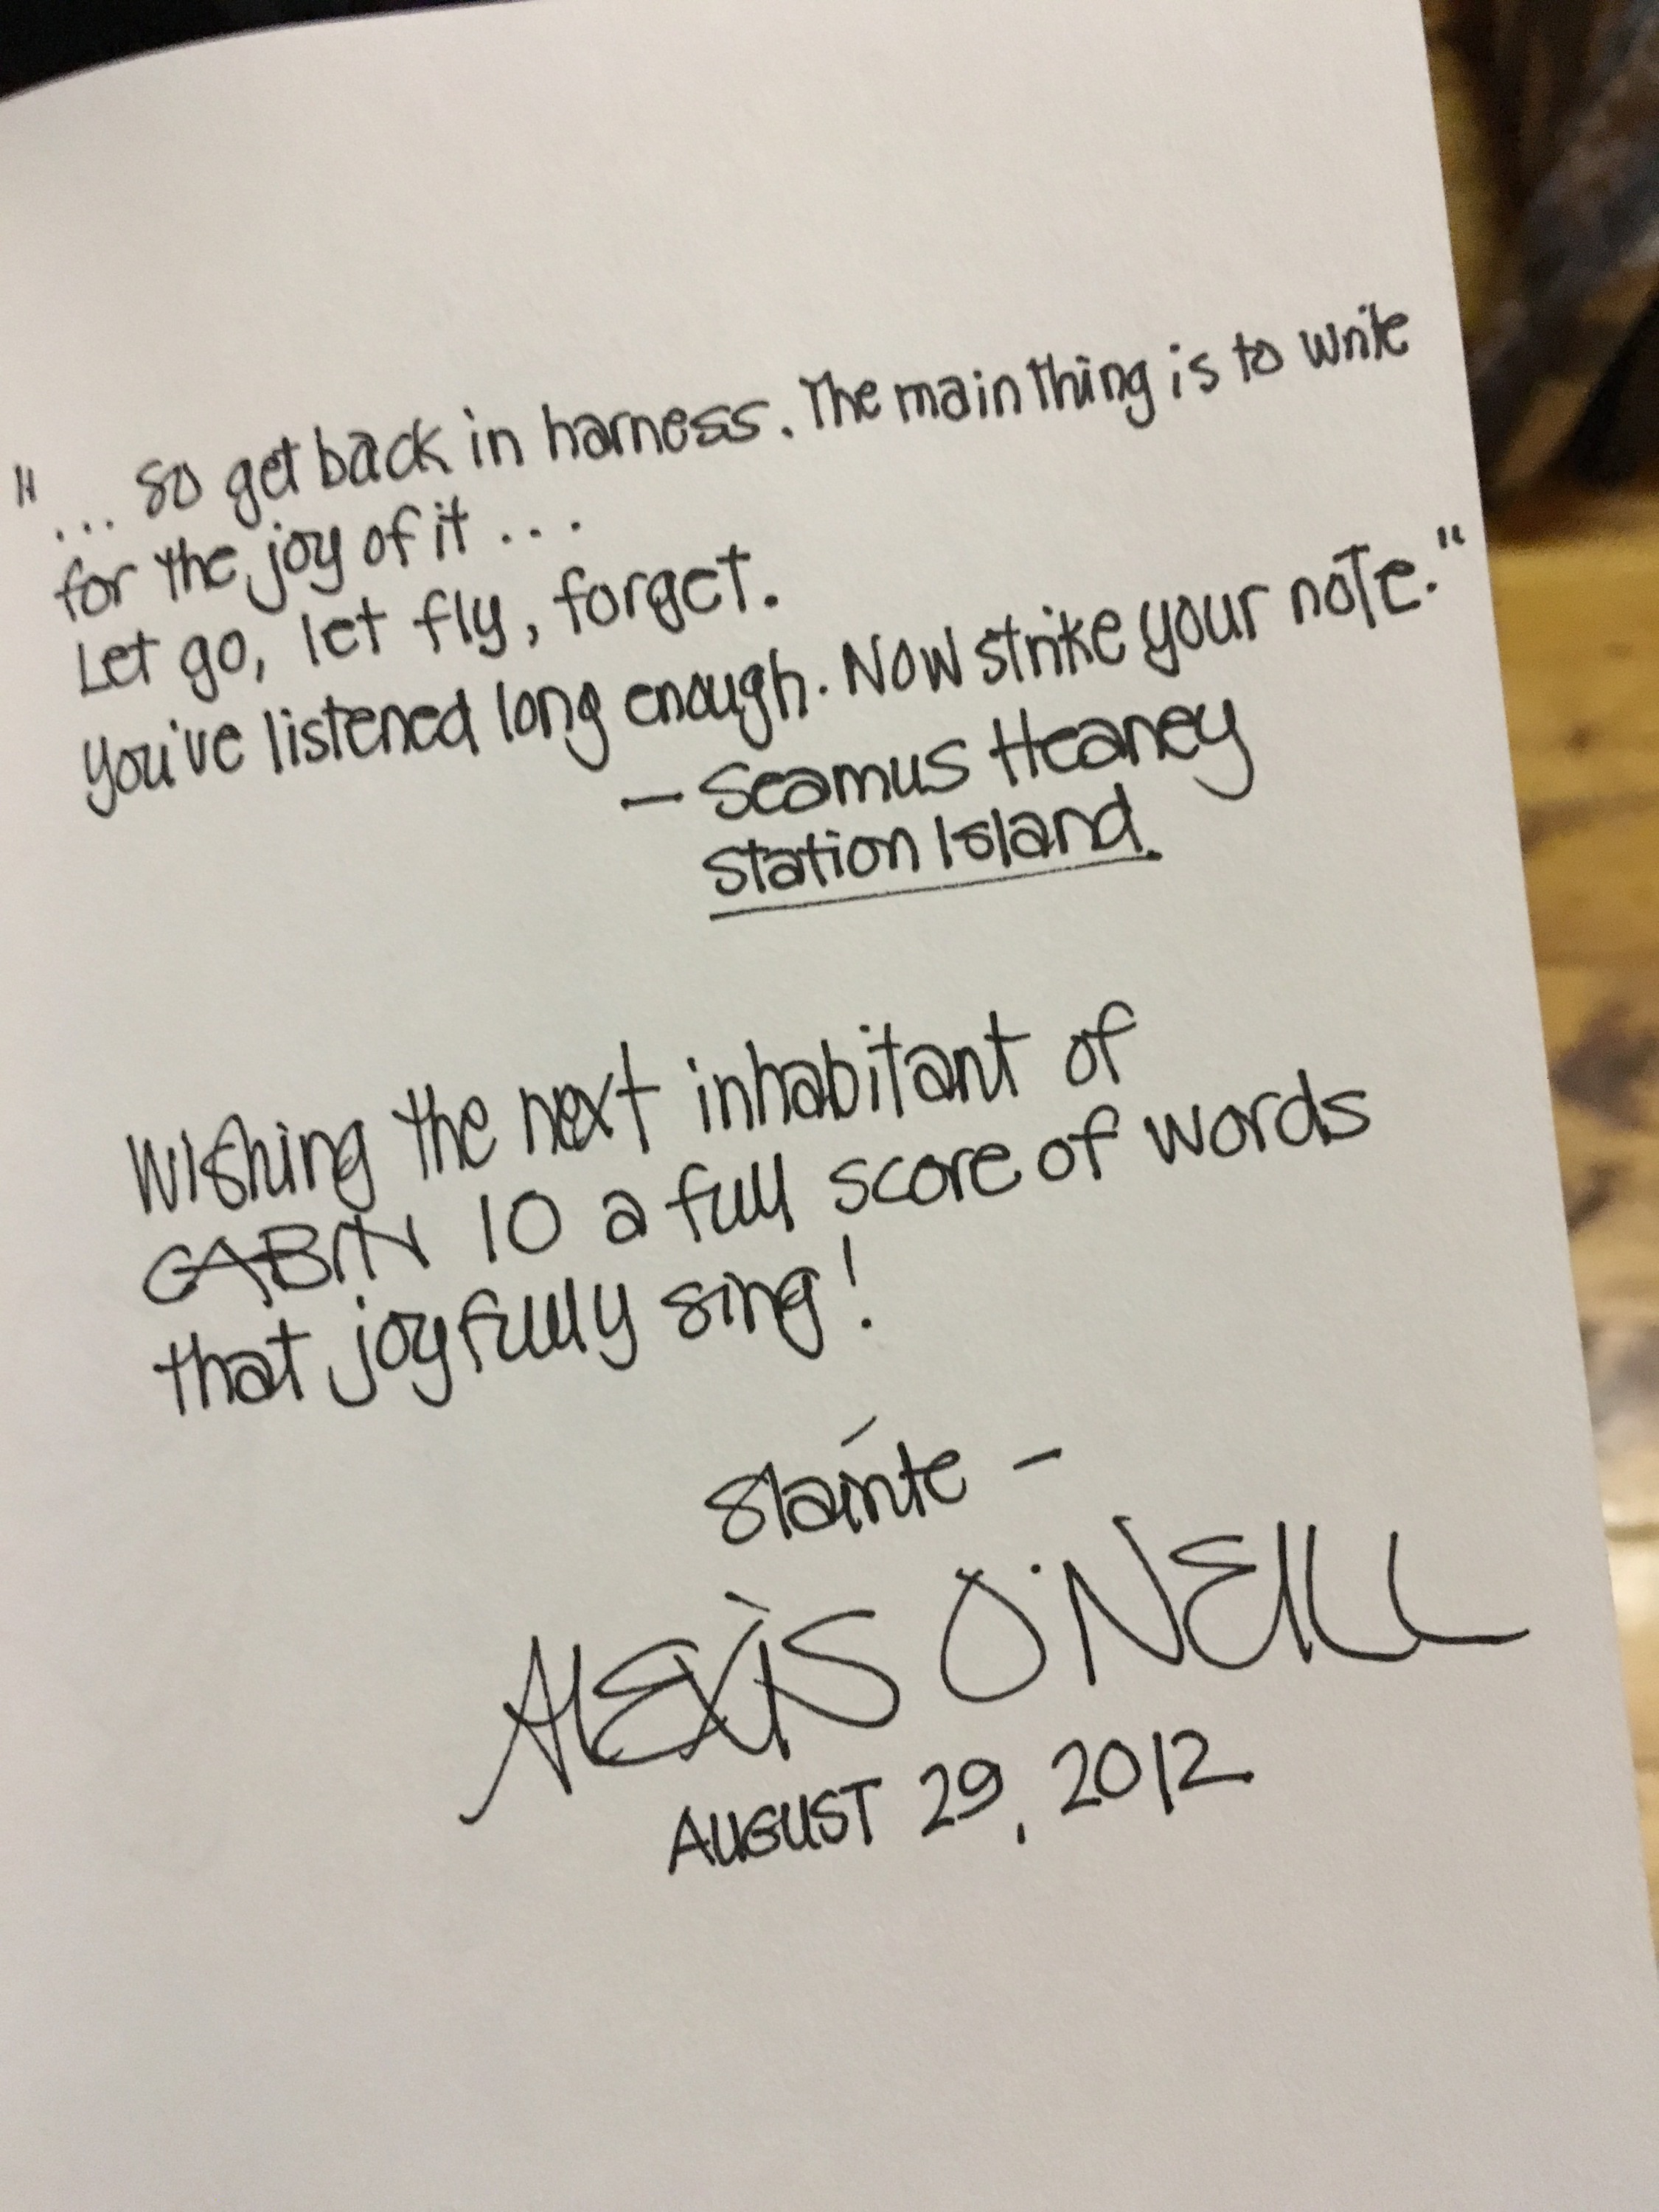 "... so get back in harness. The main thing is to write
for the joy of it ...
Let go, let fly, forget.
You've listened long enough. Now strike your note."
— Seamus Heaney
Station Island.
Wishing the next inhabitant of
CABIN 10 a full score of words
that joyfully sing!
Sláinte –
ALEXIS O'NEILL
AUGUST 29, 2012